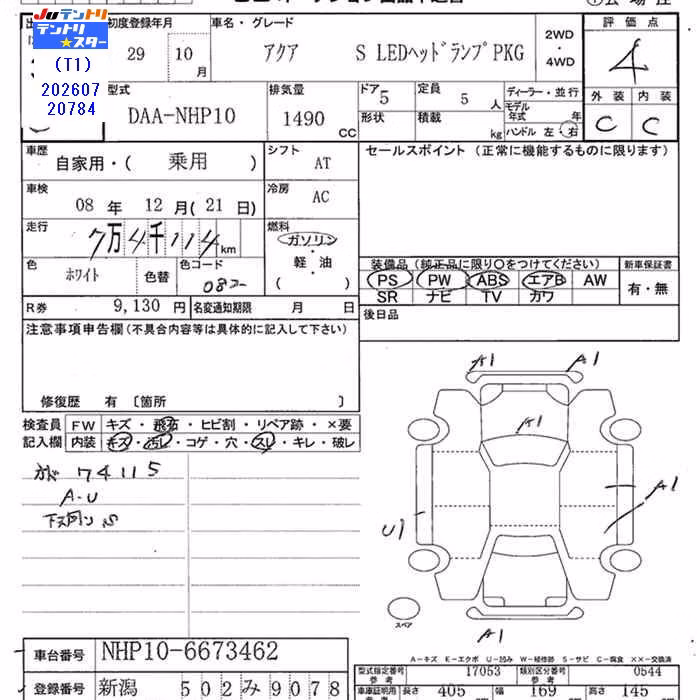 Juテントリ
テントリ
スター
(T1)
202607
20784
初度登録年月
29 年 10 月
車名・グレード
アクア S LEDヘッドランプPKG
2WD
・
4WD
評価点
4
外装 内装
C C
型式
DAA-NHP10
排気量
1490 CC
ドア 5
定員 5 人
形状
積載 kg
ディーラー・並行
モデル
年式 年
ハンドル 左・右
車歴
自家用・( 乗用 )
シフト
AT
セールスポイント (正常に機能するものに限ります)
車検
08 年 12 月 ( 21 日)
冷房
AC
走行
7万4千114 km
燃料
ガソリン
軽・油
( )
色
ホワイト
色替
色コード
装備品 (純正品に限り○をつけてください)
PS PW ABS エアB AW
SR ナビ TV カワ
新車保証書
有・無
R券 9,130 円
名変通知期限 月 日
後日品
注意事項申告欄 (不具合内容等は具体的に記入して下さい)
修復歴 有 〔箇所 〕
検査員
記入欄
FW キズ・飛石・ヒビ割・リペア跡・×要
内装 キズ・汚レ・コゲ・穴・スレ・キレ・破レ
74115
A-U
A1 A1
A1
A1
U1
A1
スペア
A-キズ E-エクボ U-凹み W-補修跡 S-サビ C-腐食 XX-交換済
車台番号 NHP10-6673462
登録番号 新潟 502み9078
型式指定番号
参考
17053
類別区分番号
参考
0544
車庫証明用
参考
長さ 405 幅 169 高さ 145